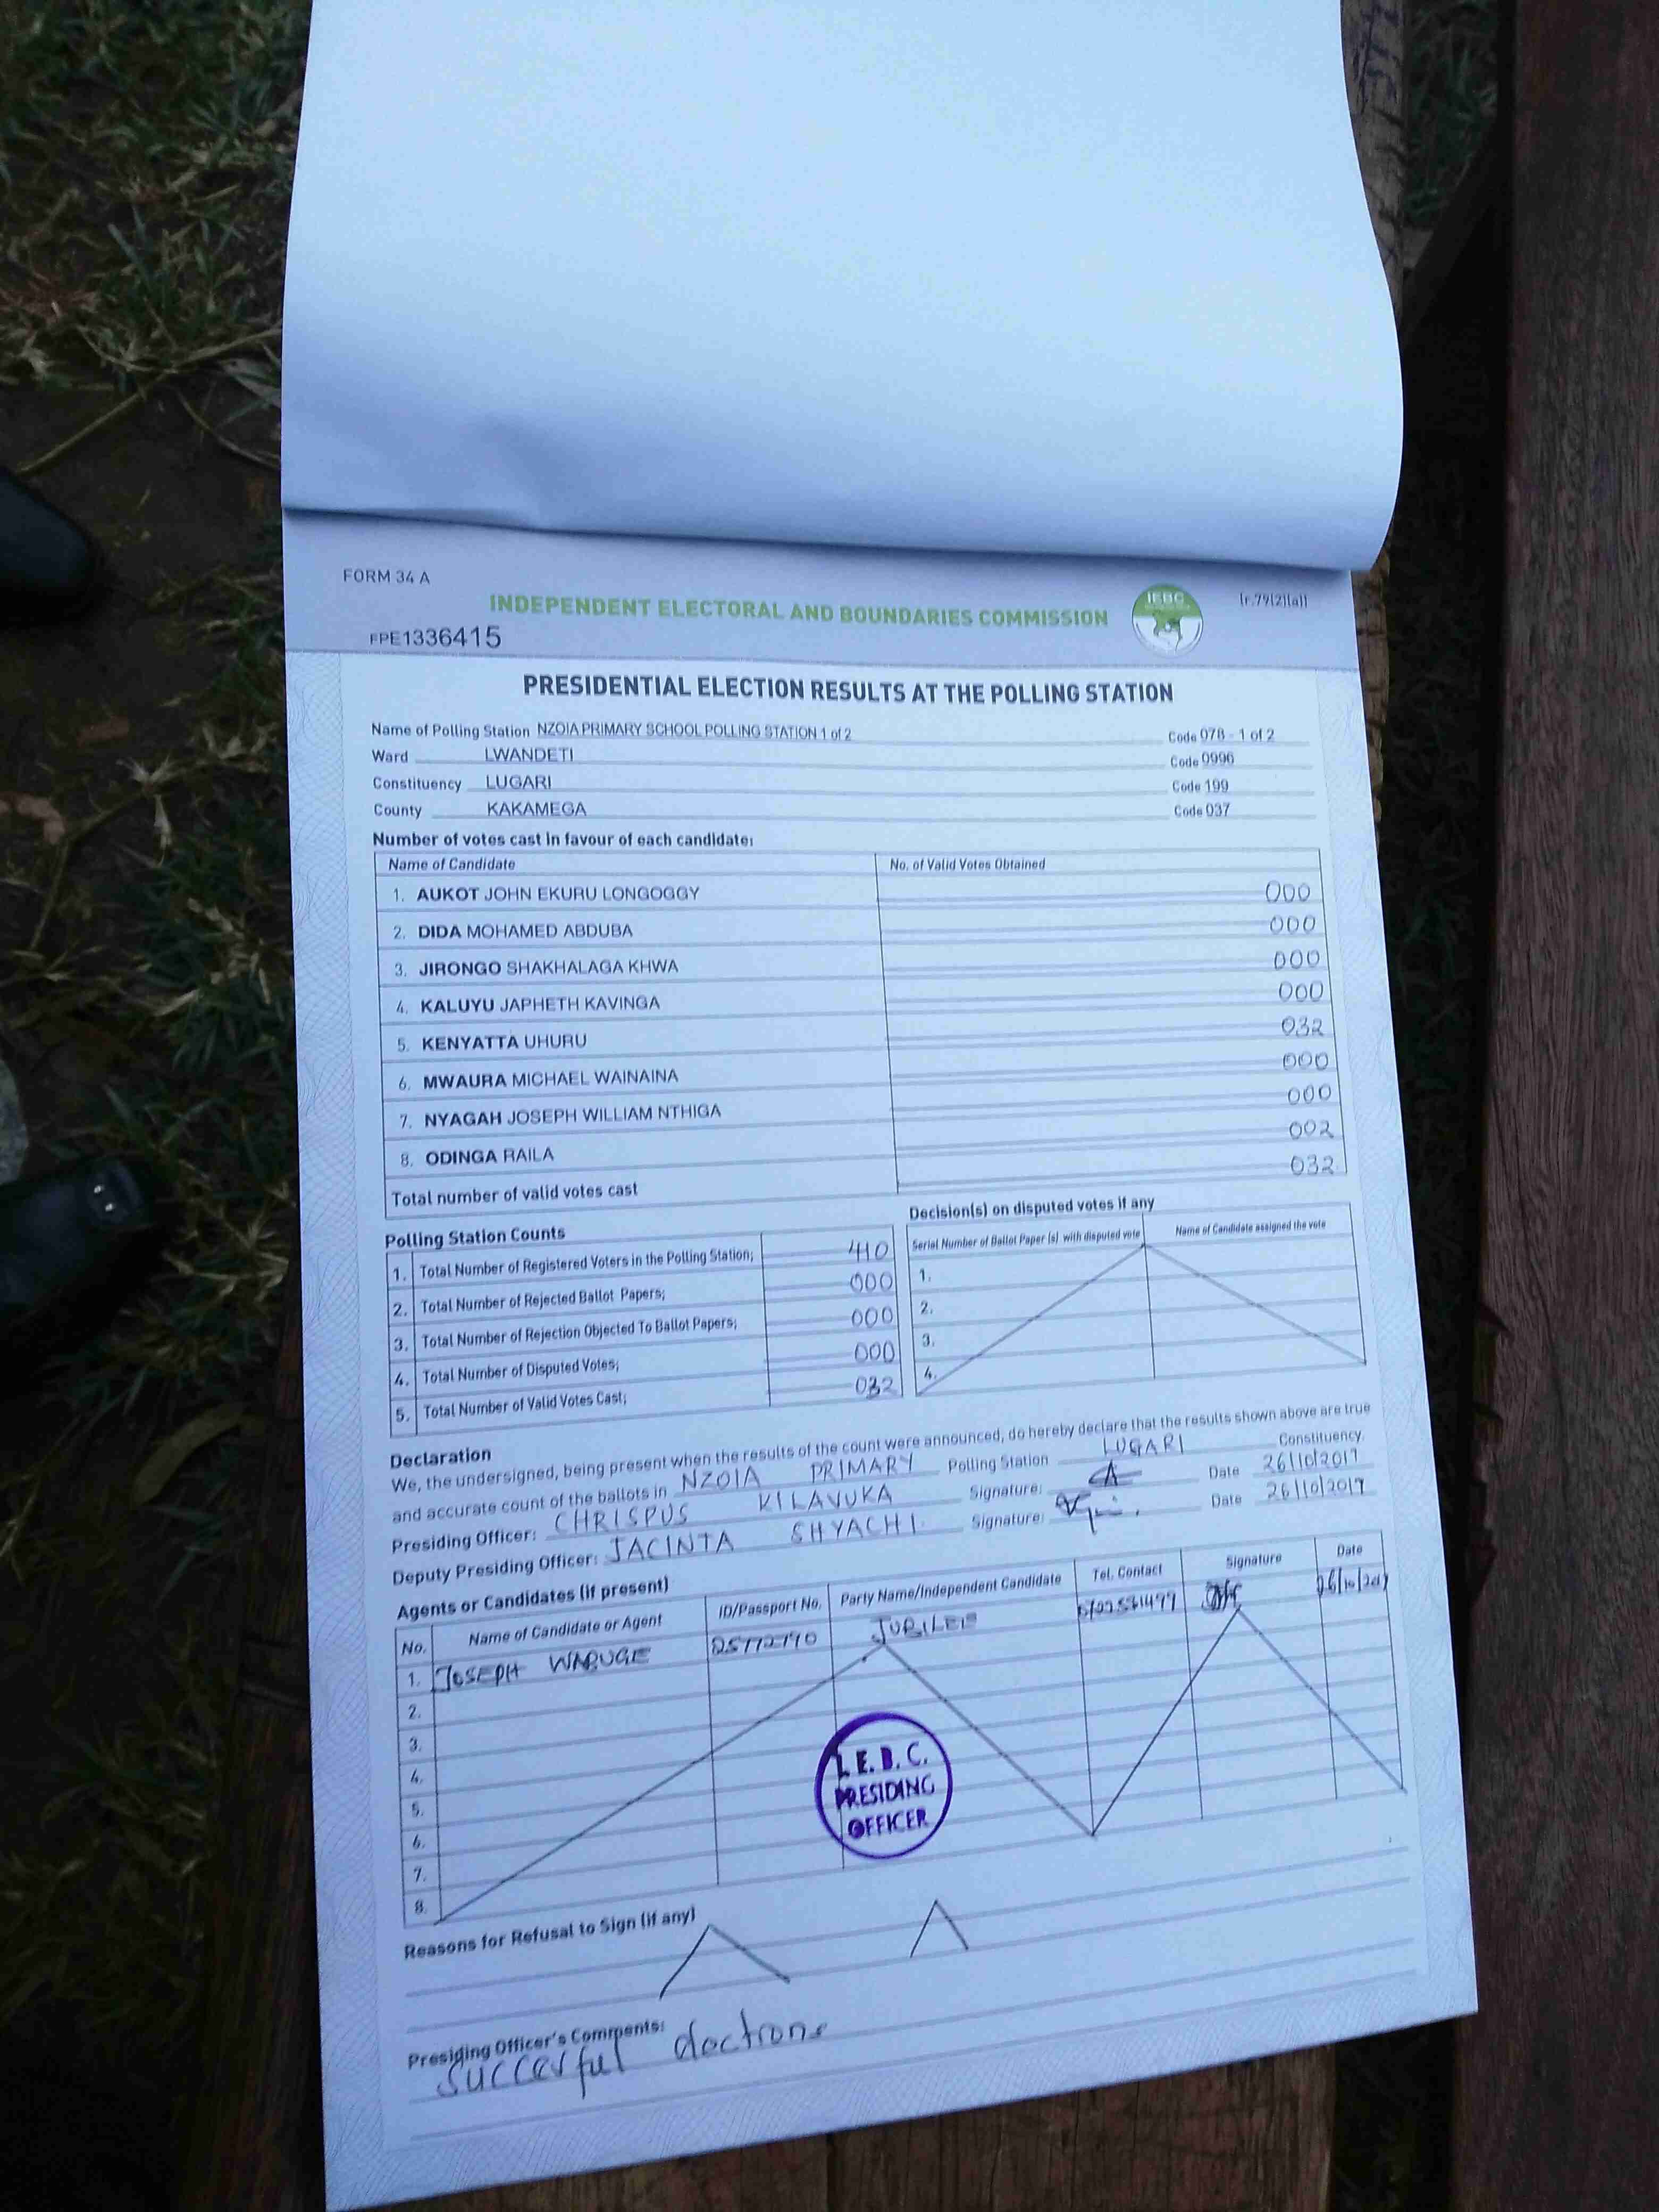 FORM 34 A
INDEPENDENT ELECTORAL AND BOUNDARIES COMMISSION
IEBC
[r.79(2)(a)]
FPE1336415
PRESIDENTIAL ELECTION RESULTS AT THE POLLING STATION
Name of Polling Station NZOIA PRIMARY SCHOOL POLLING STATION 1 of 2 Code 078 - 1 of 2
Ward LWANDETI Code 0996
Constituency LUGARI Code 199
County KAKAMEGA Code 037
Number of votes cast in favour of each candidate:
Name of Candidate No. of Valid Votes Obtained
1. AUKOT JOHN EKURU LONGOGGY 000
2. DIDA MOHAMED ABDUBA 000
3. JIRONGO SHAKHALAGA KHWA 000
4. KALUYU JAPHETH KAVINGA 000
5. KENYATTA UHURU 032
6. MWAURA MICHAEL WAINAINA 000
7. NYAGAH JOSEPH WILLIAM NTHIGA 000
8. ODINGA RAILA 002
Total number of valid votes cast 032
Polling Station Counts
1. Total Number of Registered Voters in the Polling Station; 410
2. Total Number of Rejected Ballot Papers; 000
3. Total Number of Rejection Objected To Ballot Papers; 000
4. Total Number of Disputed Votes; 000
5. Total Number of Valid Votes Cast; 032
Decision(s) on disputed votes if any
Serial Number of Ballot Paper (s) with disputed vote Name of Candidate assigned the vote
1.
2.
3.
4.
Declaration
We, the undersigned, being present when the results of the count were announced, do hereby declare that the results shown above are true
and accurate count of the ballots in NZOIA PRIMARY Polling Station LUGARI Constituency.
Presiding Officer: CHRISPUS KILAVUKA Signature: Date 26/10/2017
Deputy Presiding Officer: JACINTA SHYACHI. Signature: Date 26/10/2017
Agents or Candidates (if present)
No. Name of Candidate or Agent ID/Passport No. Party Name/Independent Candidate Tel. Contact Signature Date
1. JOSEPH WABUGE JUBILEE 26/10/2017
2.
3.
4.
5.
6.
7.
8.
I.E.B.C.
PRESIDING
OFFICER
Reasons for Refusal to Sign (if any)
Presiding Officer's Comments:
Succesful elections